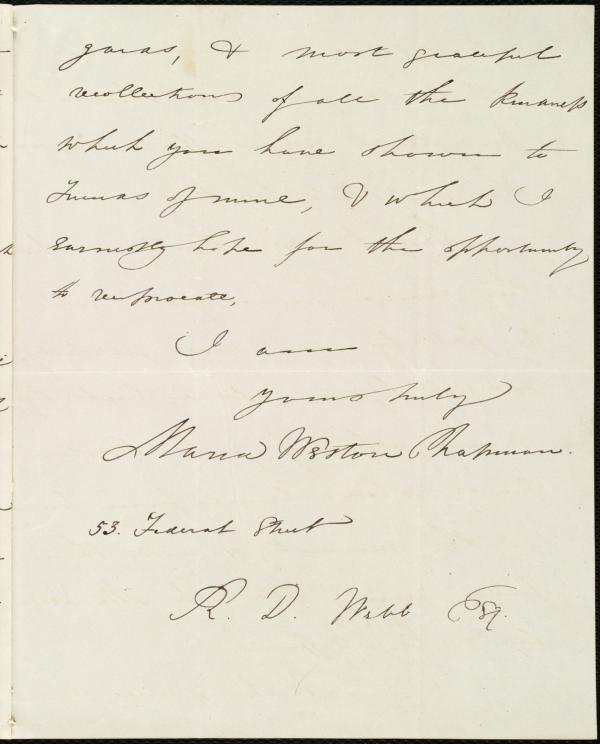 gards, & most grateful
recollections of all the kindness
which you have shown to
Friends of mine, & which I
earnestly hope for the opportunity
to reciprocate,
I am
yours truly
Maria Weston Chapman.
53. Federal Street
R. D. Webb Esq.